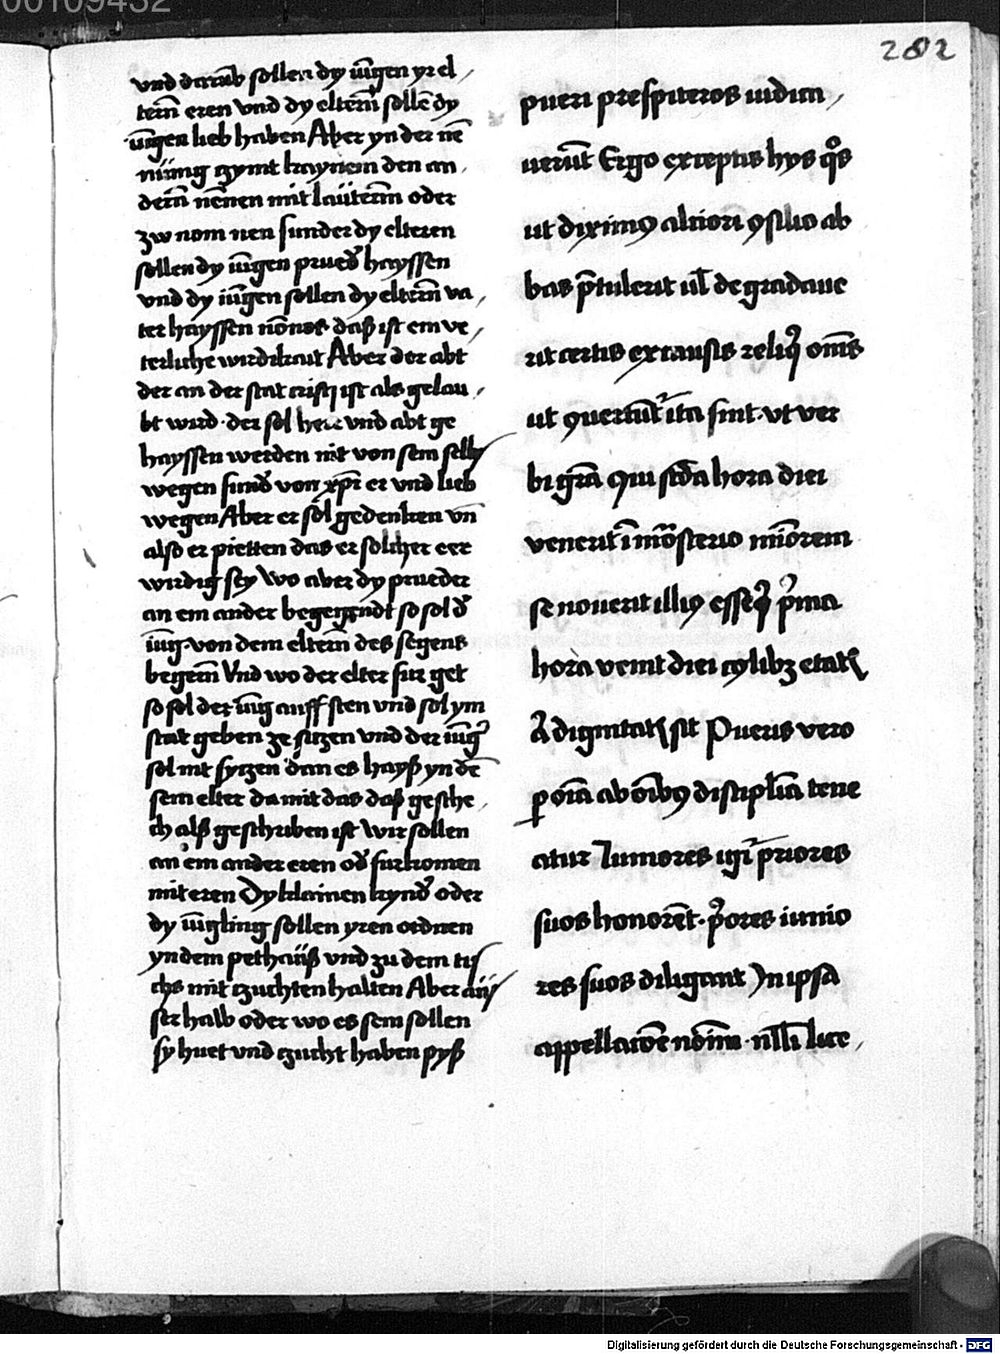 282
vnd darub̄ sollen dy iūgen yr el
tern̄ eren vnd dy eltern̄ sollē dy
iūngen lieb haben Aber yn der nē
nūng czymt kaynem den an
dern̄ nēnen mit lauterm̄ oder
zw nom nen sunder dy elteren
sollen dy iūngen prued̄ hayssen
vnd dy iūngen sollen dy eltern̄ va
ter hayssen nōnos daß ist em ve
terliche wirdikait Aber der abt
der an der stat cristi ist als gelau
bt wird · der sol herr vnd abt ge
hayssen werden nit von sem selbs
wegen sund̄ von xp̄i er vnd lieb
wegen Aber er sol gedenken vn̄
also er pietten das er solcher eer
wirdig sey Wo aber dy prueder
an em ander begegendt so sol d̄
iūng von dem eltern̄ des segens
begern̄ Vnd wo der elter fur get
so sol der iūng auff sten vnd sol ym
stat geben ze siczen vnd der iūng̉
sol nit syczen dan es hayß yn dē
sem elter da mit das daß gesche
ch alß geschriben ist Wir sollen
an em ander eren od̄ furkomen
mit eren Dy klainen kynd̄ oder
dy iūngling sollen yren ordnen
yn dem pethauß vnd zu dem tis
chs mit czuchten halten Aber auß
ser halb oder wo es sem sollen
sy huet vnd czucht haben pyß
pueri prespiteros iudica
uerūt Ergo exceptis hys q̄s
ut diximꝰ altiori ꝯsilio ab
bas p̄tulerit ul̄ degradaue
rit certis ex causis reliq̉ om̄s
ut ꝯuertūt̉ ita sint · vt ver
bi gr̄a Qui scd̄a hora diei
venerit ī mōsterio mīorem
se nouerit illiꝰ esse q̉ p̉ma
hora venit diei cꝰlibꝫ etatꝭ
A̅ dignitatꝭ sit Pueris vero
ꝑ oīa ab oībꝰ discipl̄ia tene
atur Iuniores igr̄ priores
suos honorēt · p̉ores iunio
res suos diligant In ipsa
appellacōe nōim̄ · nlli lice
Digitalisierung gefördert durch die Deutsche Forschungsgemeinschaft - DFG